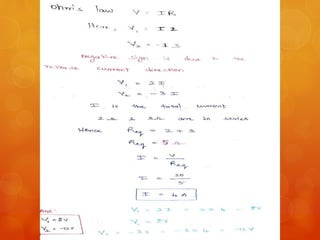 Ohm's law V = IR
Here, V₁ = I 2
V₂ = - I 3
negative sign is due to the
reverse current direction
V₁ = 2I
V₂ = -3I
I is the total current
2Ω & 3Ω are in series
Hence Req = 2 + 3
Req = 5Ω
I = V / Req
I = 20 / 5
I = 4A
Ans:
V₁ = 2I = 2×4 = 8V
V₁ = 8V
V₁ = 8V
V₂ = -12V
V₂ = -3I = -3×4 = -12V